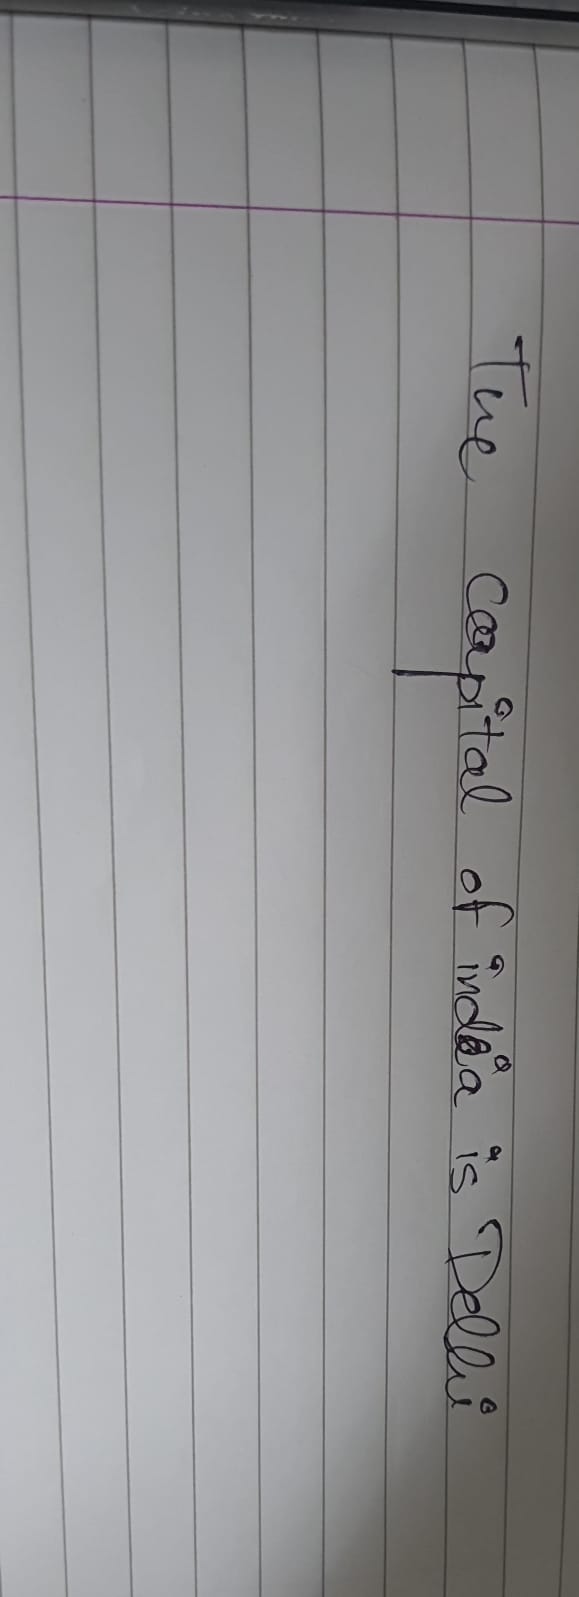 The capital of india is Delhi